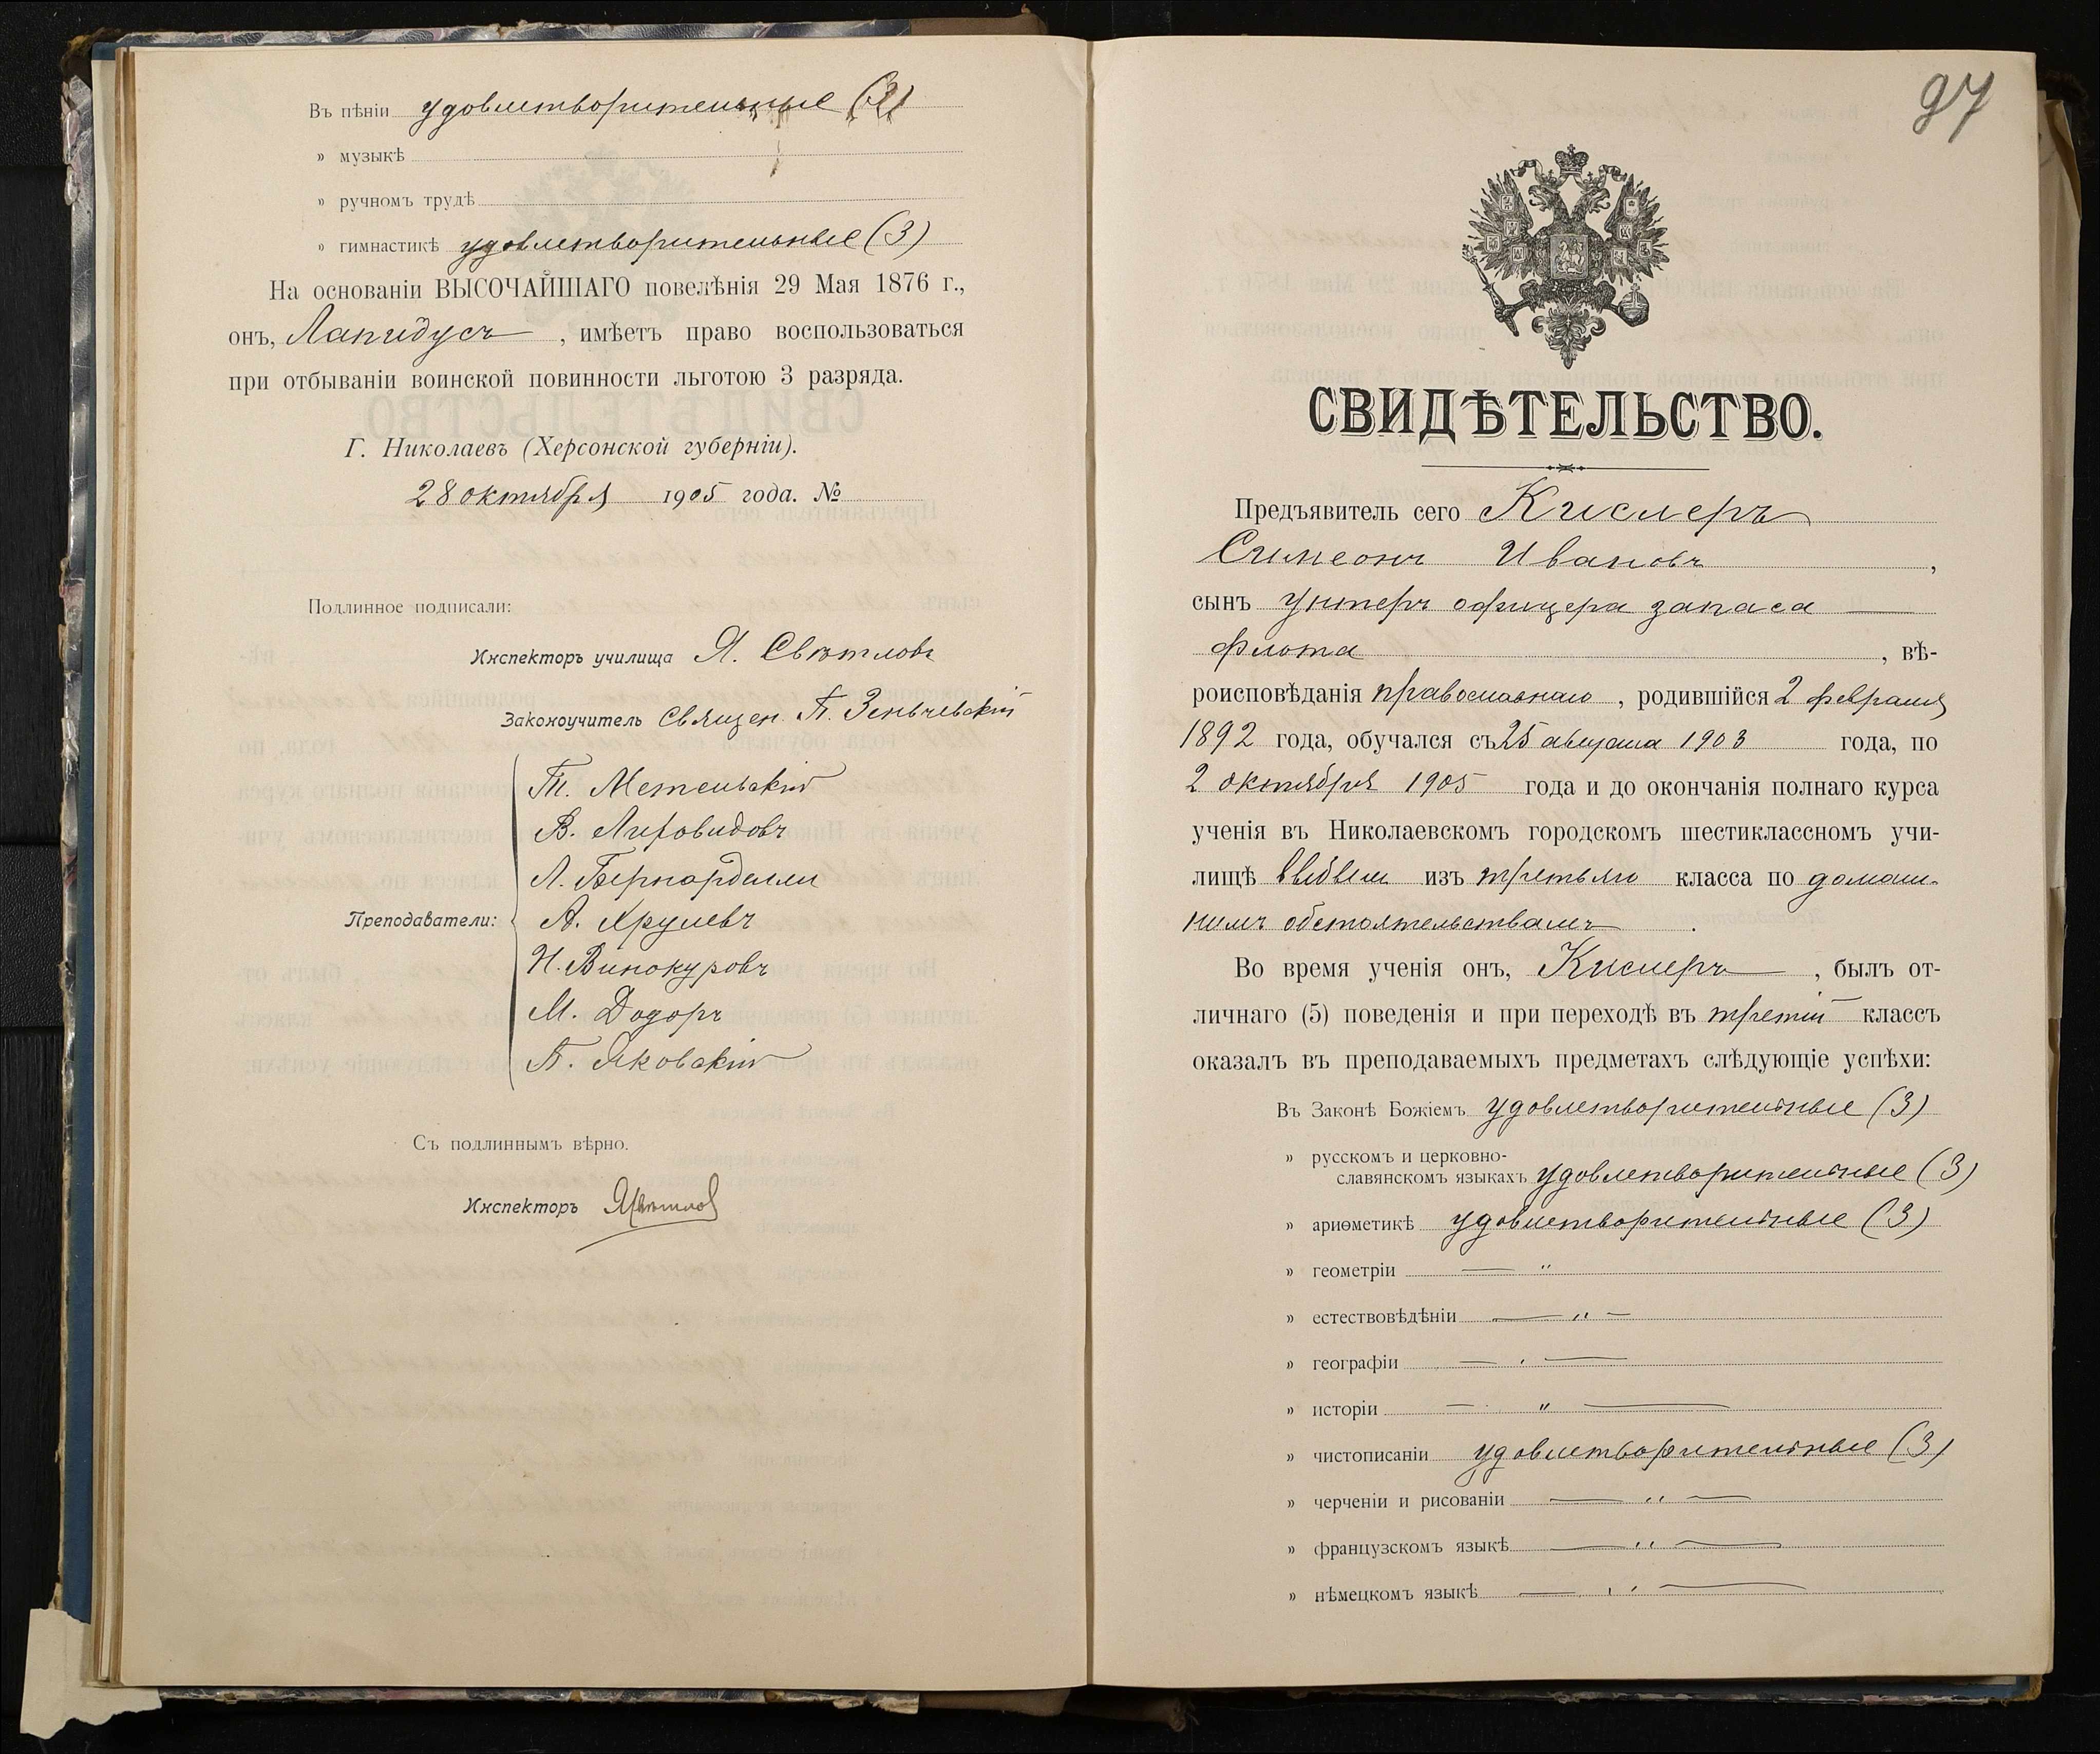 Въ пѣніи удовлетворительные (3)
» музыкѣ
» ручномъ трудѣ
» гимнастикѣ удовлетворительные (3)
На основаніи ВЫСОЧАЙШАГО повелѣнія 29 Мая 1876 г.,
онъ, Лапидусъ, имѣетъ право воспользоваться
при отбываніи воинской повинности льготою 3 разряда.
Г. Николаевъ (Херсонской губерніи).
28 октября 1905 года. №
Подлинное подписали:
Инспекторъ училища Я. Свѣтловъ
Законоучитель священ. П. Зеньчевскій
Преподаватели:
Т. Метельскій
В. Лировидовъ
Л. Бернарделли
А. Хрулевъ
Н. Винокуровъ
М. Додоръ
П. Яковскій
Съ подлиннымъ вѣрно.
Инспекторъ ЯСвѣтлов
97
СВИДѢТЕЛЬСТВО.
Предъявитель сего Кислеръ
Симеонъ Ивановъ,
сынъ унтеръ офицера запаса
флота, вѣ-
роисповѣданія православнаго, родившійся 2 февраля
1892 года, обучался съ 25 августа 1903 года, по
2 октября 1905 года и до окончанія полнаго курса
ученія въ Николаевскомъ городскомъ шестиклассномъ учи-
лищѣ выбылъ изъ третьяго класса по домаш-
нимъ обстоятельствамъ.
Во время ученія онъ, Кислеръ, былъ от-
личнаго (5) поведенія и при переходѣ въ третій классъ
оказалъ въ преподаваемыхъ предметахъ слѣдующіе успѣхи:
Въ Законѣ Божіемъ удовлетворительные (3)
» русскомъ и церковно-
славянскомъ языкахъ удовлетворительные (3)
» ариѳметикѣ удовлетворительные (3)
» геометріи — "
» естествовѣдѣніи — " —
» географіи — · —
» исторіи — " —
» чистописаніи удовлетворительные (3)
» черченіи и рисованіи — " —
» французскомъ языкѣ — " —
» нѣмецкомъ языкѣ — " —